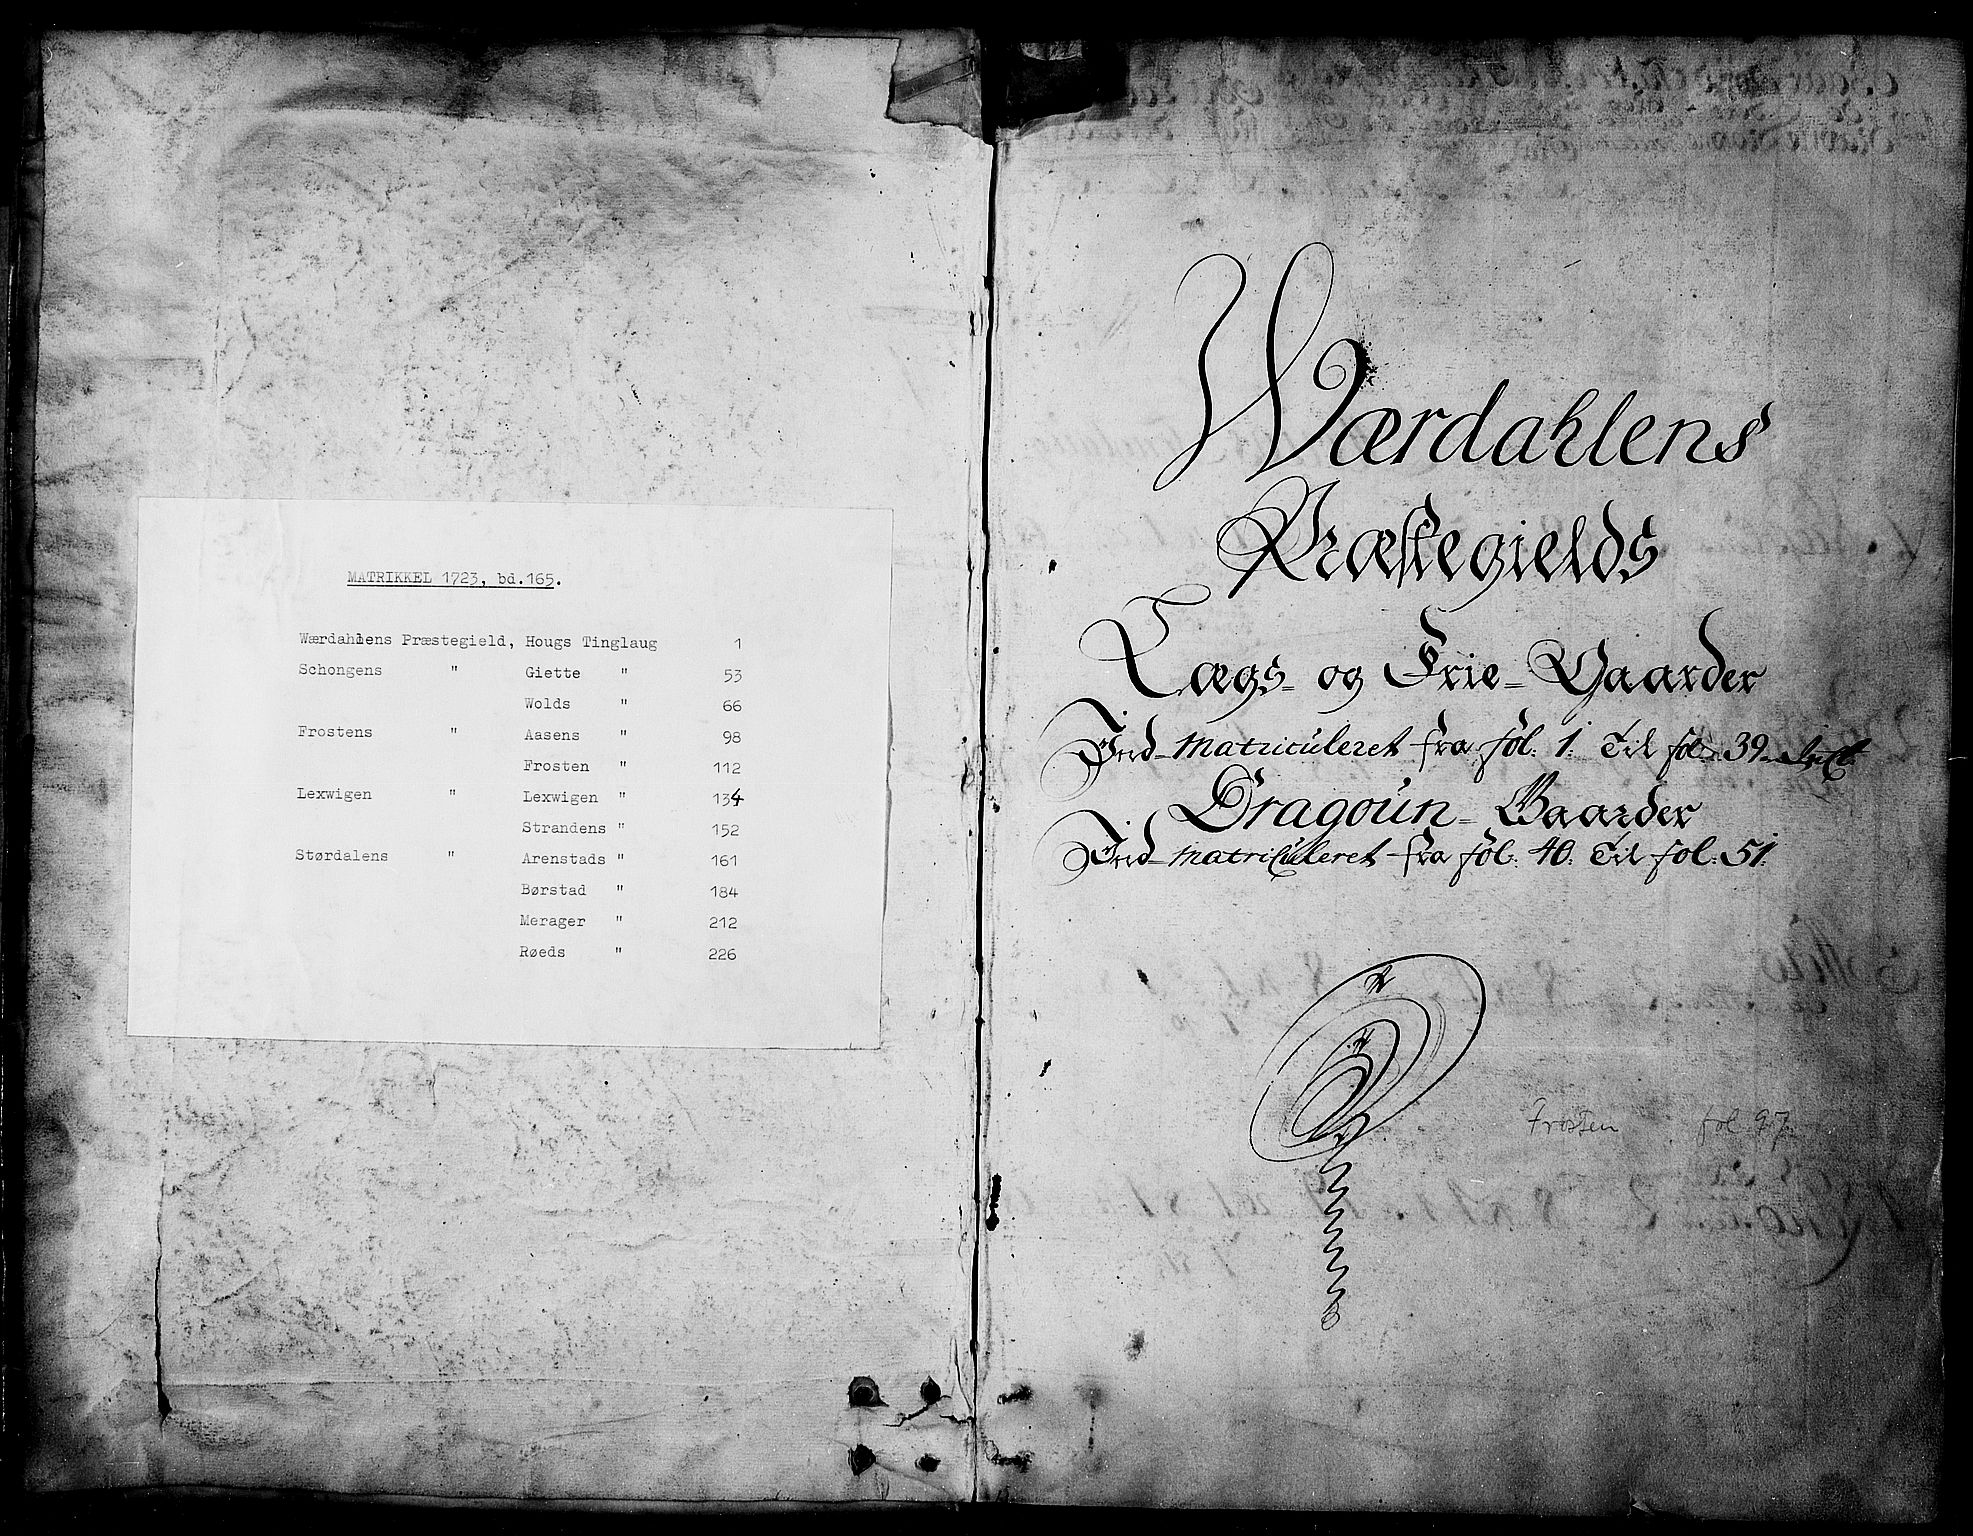 MATRIKKEL 1723, bd.165.
Wærdahlens Præstegield, Hougs Tinglaug 1
Schongens " Giette " 53
Wolds " 66
Frostens " Aasens " 98
Frosten " 112
Lexwigen " Lexwigen " 134
Strandens " 152
Størdalens " Arenstads " 161
Børstad " 184
Merager " 212
Røeds " 226
Wærdahlens
Præstegields
Lægs- og Frie-Gaarder
Ind-Matriculeret fra fol: 1: Til fol: 39
Dragoun-Gaarder
Ind-Matriculeret fra fol: 40: Til fol: 51:
Frosten fol 97.